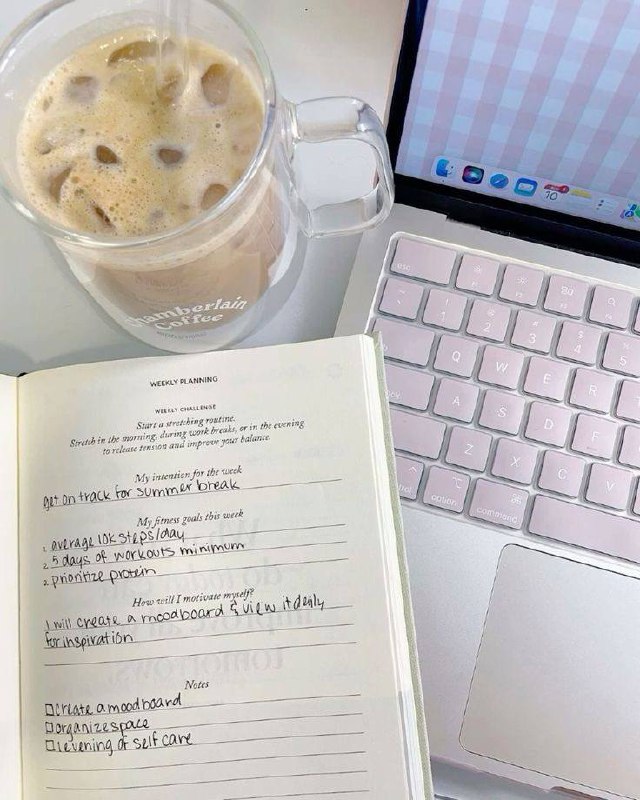 Chamberlain
Coffee
10
esc
1
2
3
4
5
Q
W
E
R
A
S
D
F
Z
X
C
V
option
command
WEEKLY PLANNING
WEEKLY CHALLENGE
Start a stretching routine.
Stretch in the morning, during work breaks, or in the evening
to release tension and improve your balance.
My intention for the week
get on track for summer break
My fitness goals this week
1. average 10k steps/day
2. 5 days of workouts minimum
3. prioritize protein
How will I motivate myself?
I will create a moodboard & view it daily
for inspiration
Notes
□ create a moodboard
□ organize space
□ 1 evening of self care